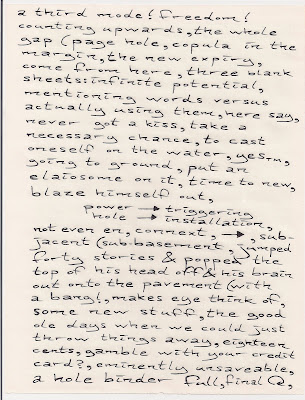 a third mode! freedom!
counting upwards, the whole
gap (page hole, copula in the
margin, the new expiry,
come from here, three blank
sheets: infinite potential,
mentioning words versus
actually using them, here say,
never got a kiss, take a
necessary chance, to cast
oneself on the water, yes
going to ground, put an
elaiosome on it, time to new,
blaze himself out,
power → triggering
hole → installation,
not even en, connext → , sub-
jacent (sub-basement, jumped
forty stories & popped the
top of his head off & his brain
out onto the pavement (with
a bang!, makes eye think of,
some new stuff, the good
ole days when we could just
throw things away, eighteen
cents, gamble with your credit
card?, eminently unsaveable,
a hole binder full, final Q,